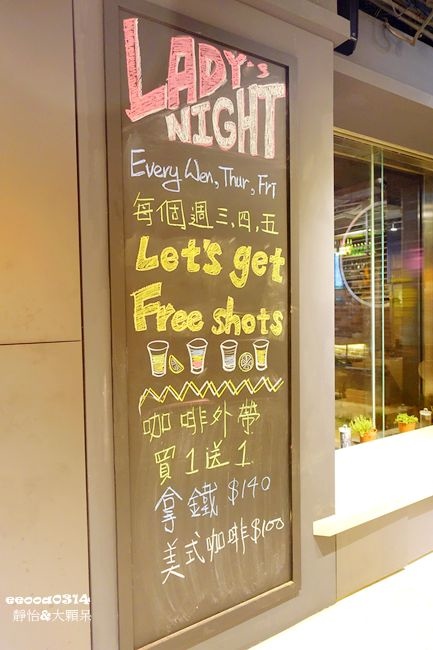 LADY's
NIGHT
Every Wen, Thur, Fri
每個週三,四,五
Let's get
Free shots
咖啡外帶
買1送1
拿鐵 $140
美式咖啡$100
eecca0314
靜怡&大顆呆